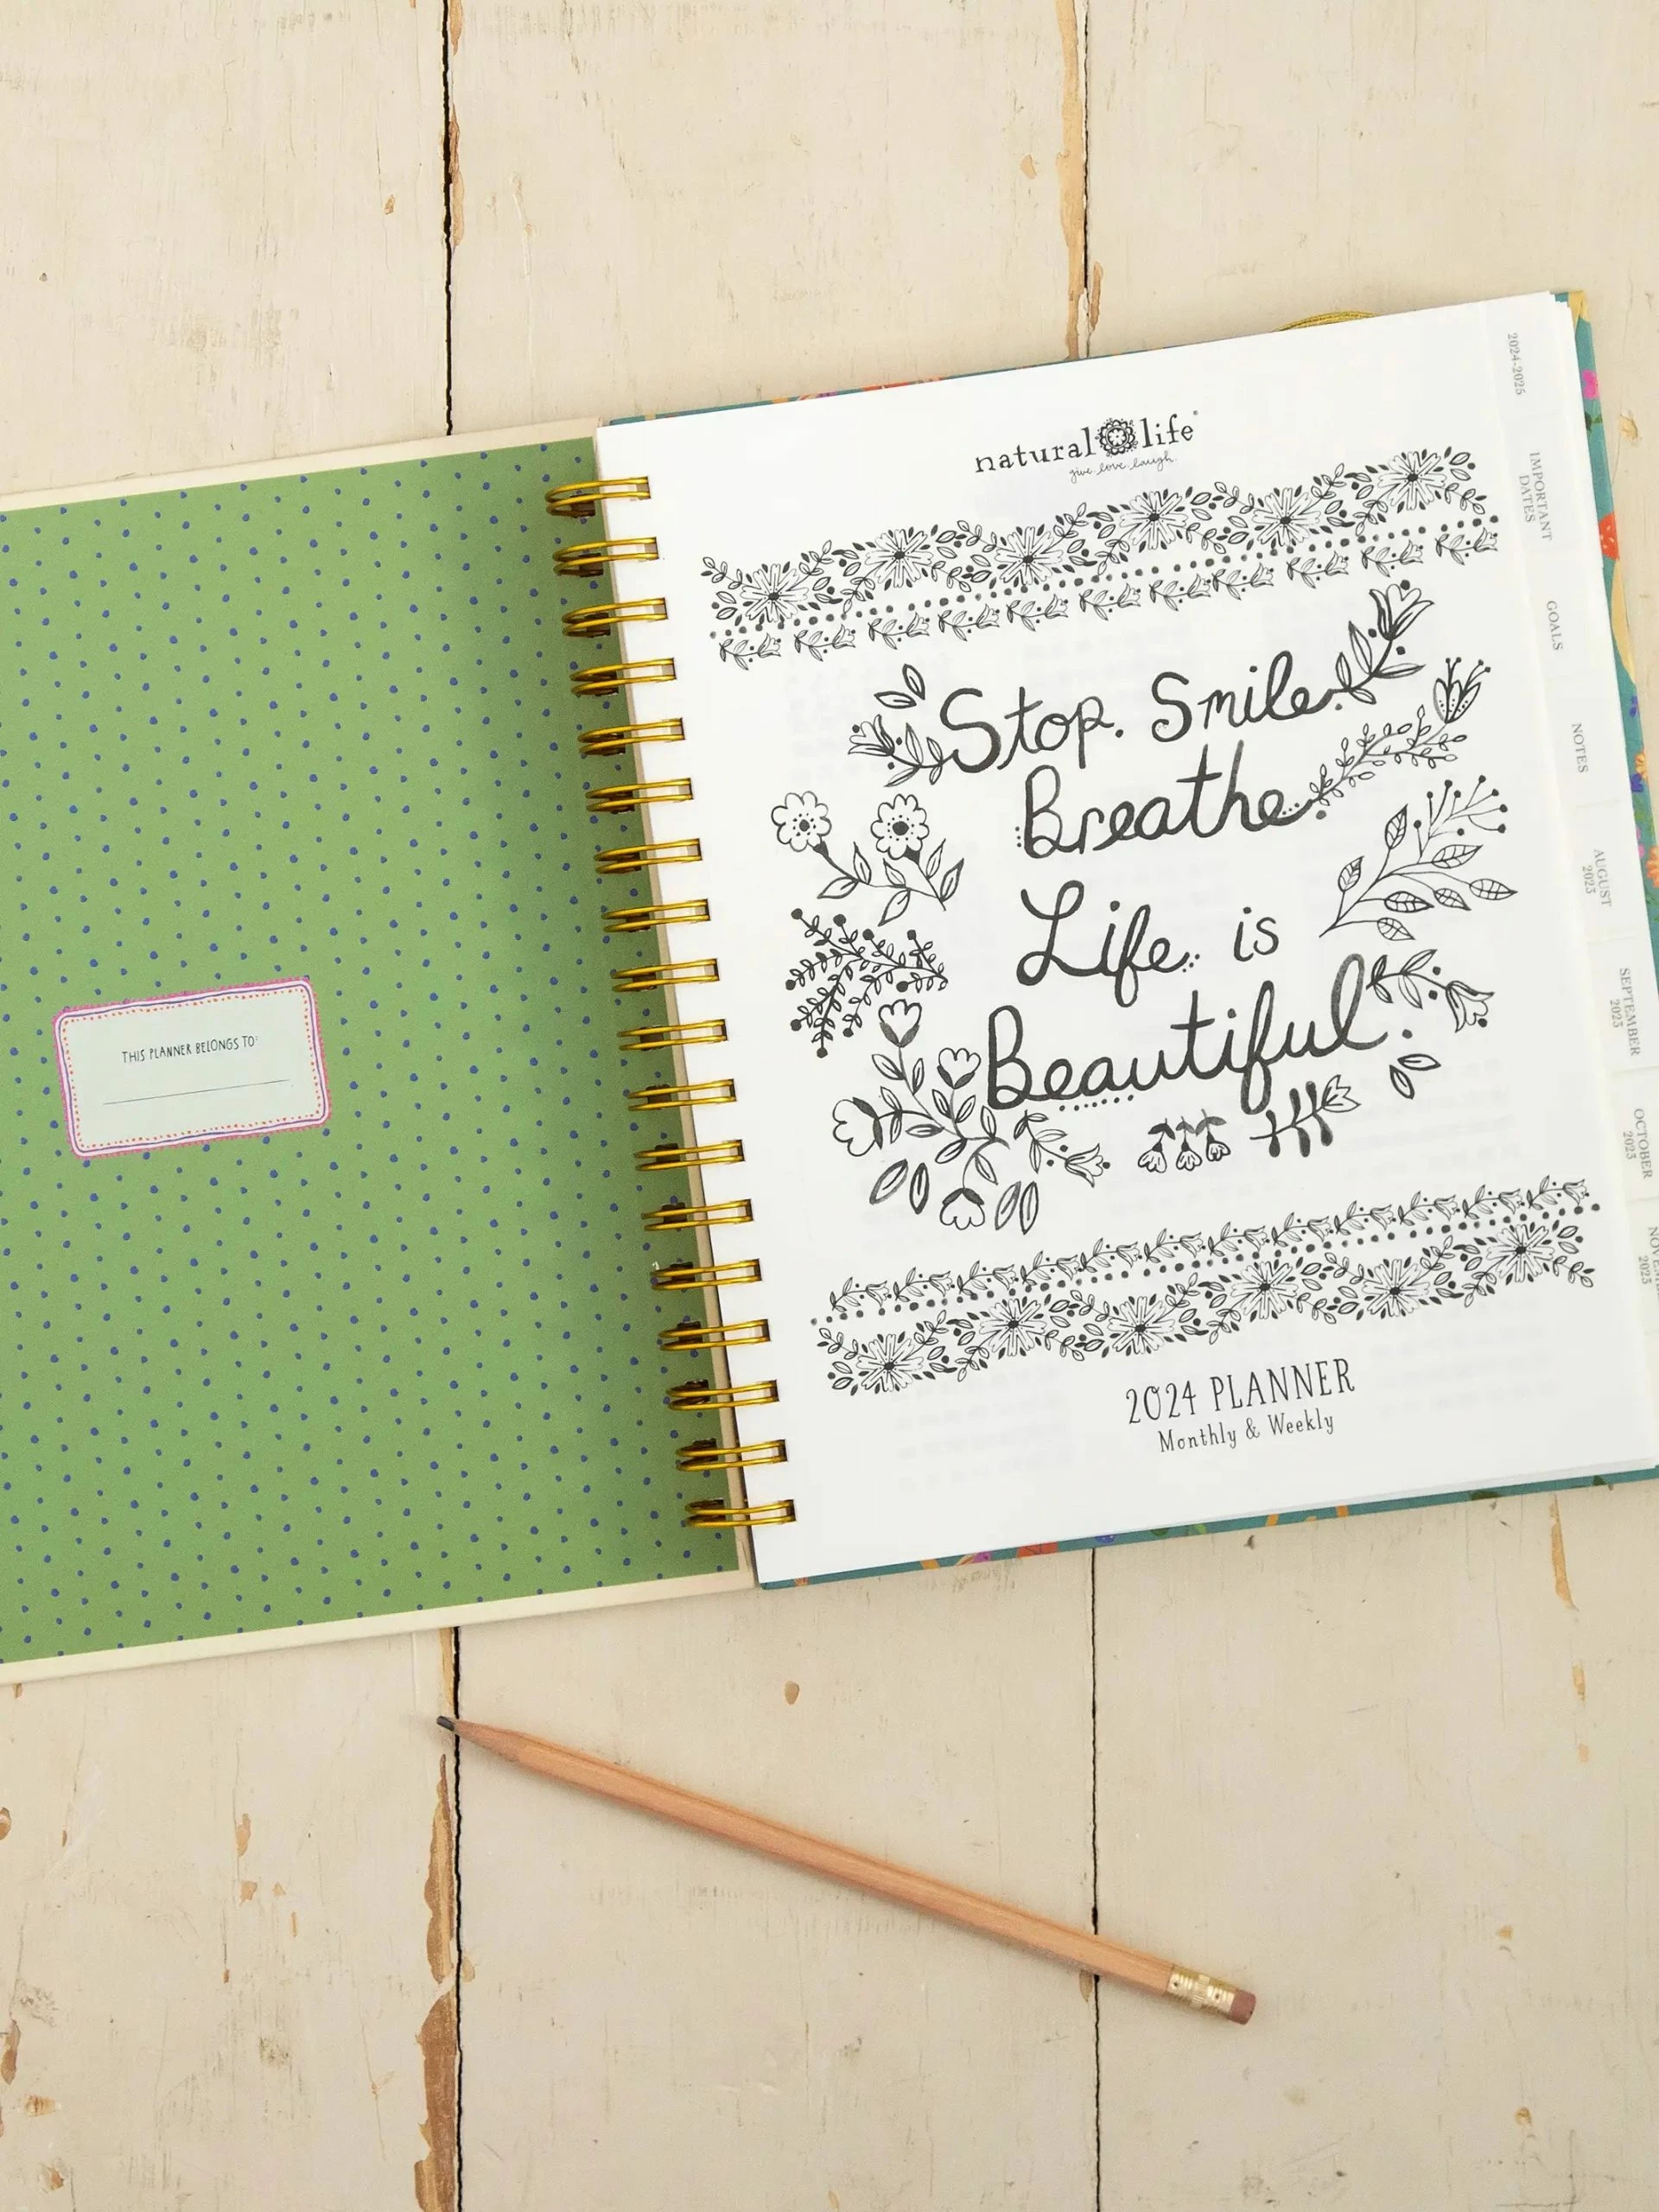 THIS PLANNER BELONGS TO:
natural life
give. love. laugh.
Stop. Smile.
Breathe.
Life is
Beautiful.
2024 PLANNER
Monthly & Weekly
2024-2025
IMPORTANT
DATES
GOALS
NOTES
AUGUST
2023
SEPTEMBER
2023
OCTOBER
2023
2023